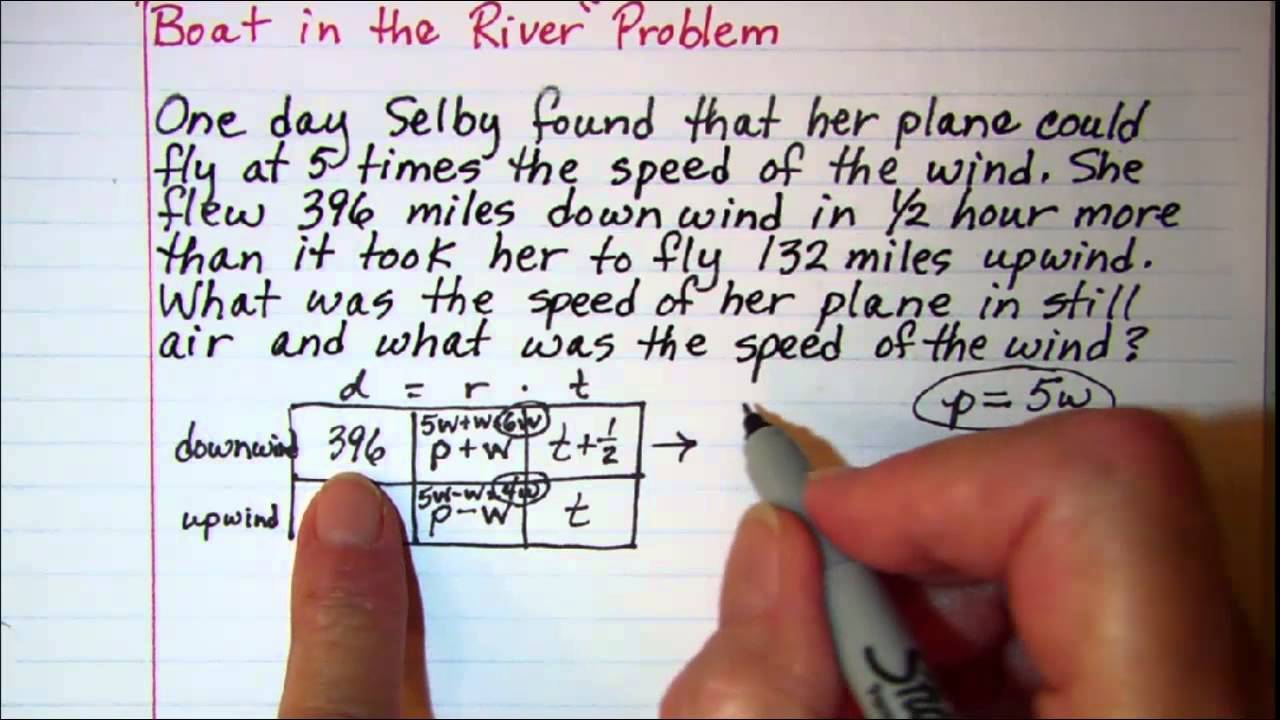 "Boat in the River" Problem
One day Selby found that her plane could
fly at 5 times the speed of the wind. She
flew 396 miles downwind in ½ hour more
than it took her to fly 132 miles upwind.
What was the speed of her plane in still
air and what was the speed of the wind?
d = r · t
p = 5w
5w+w=6w
downwind 396 p+w t+½ →
5w-w=4w
upwind p-w t